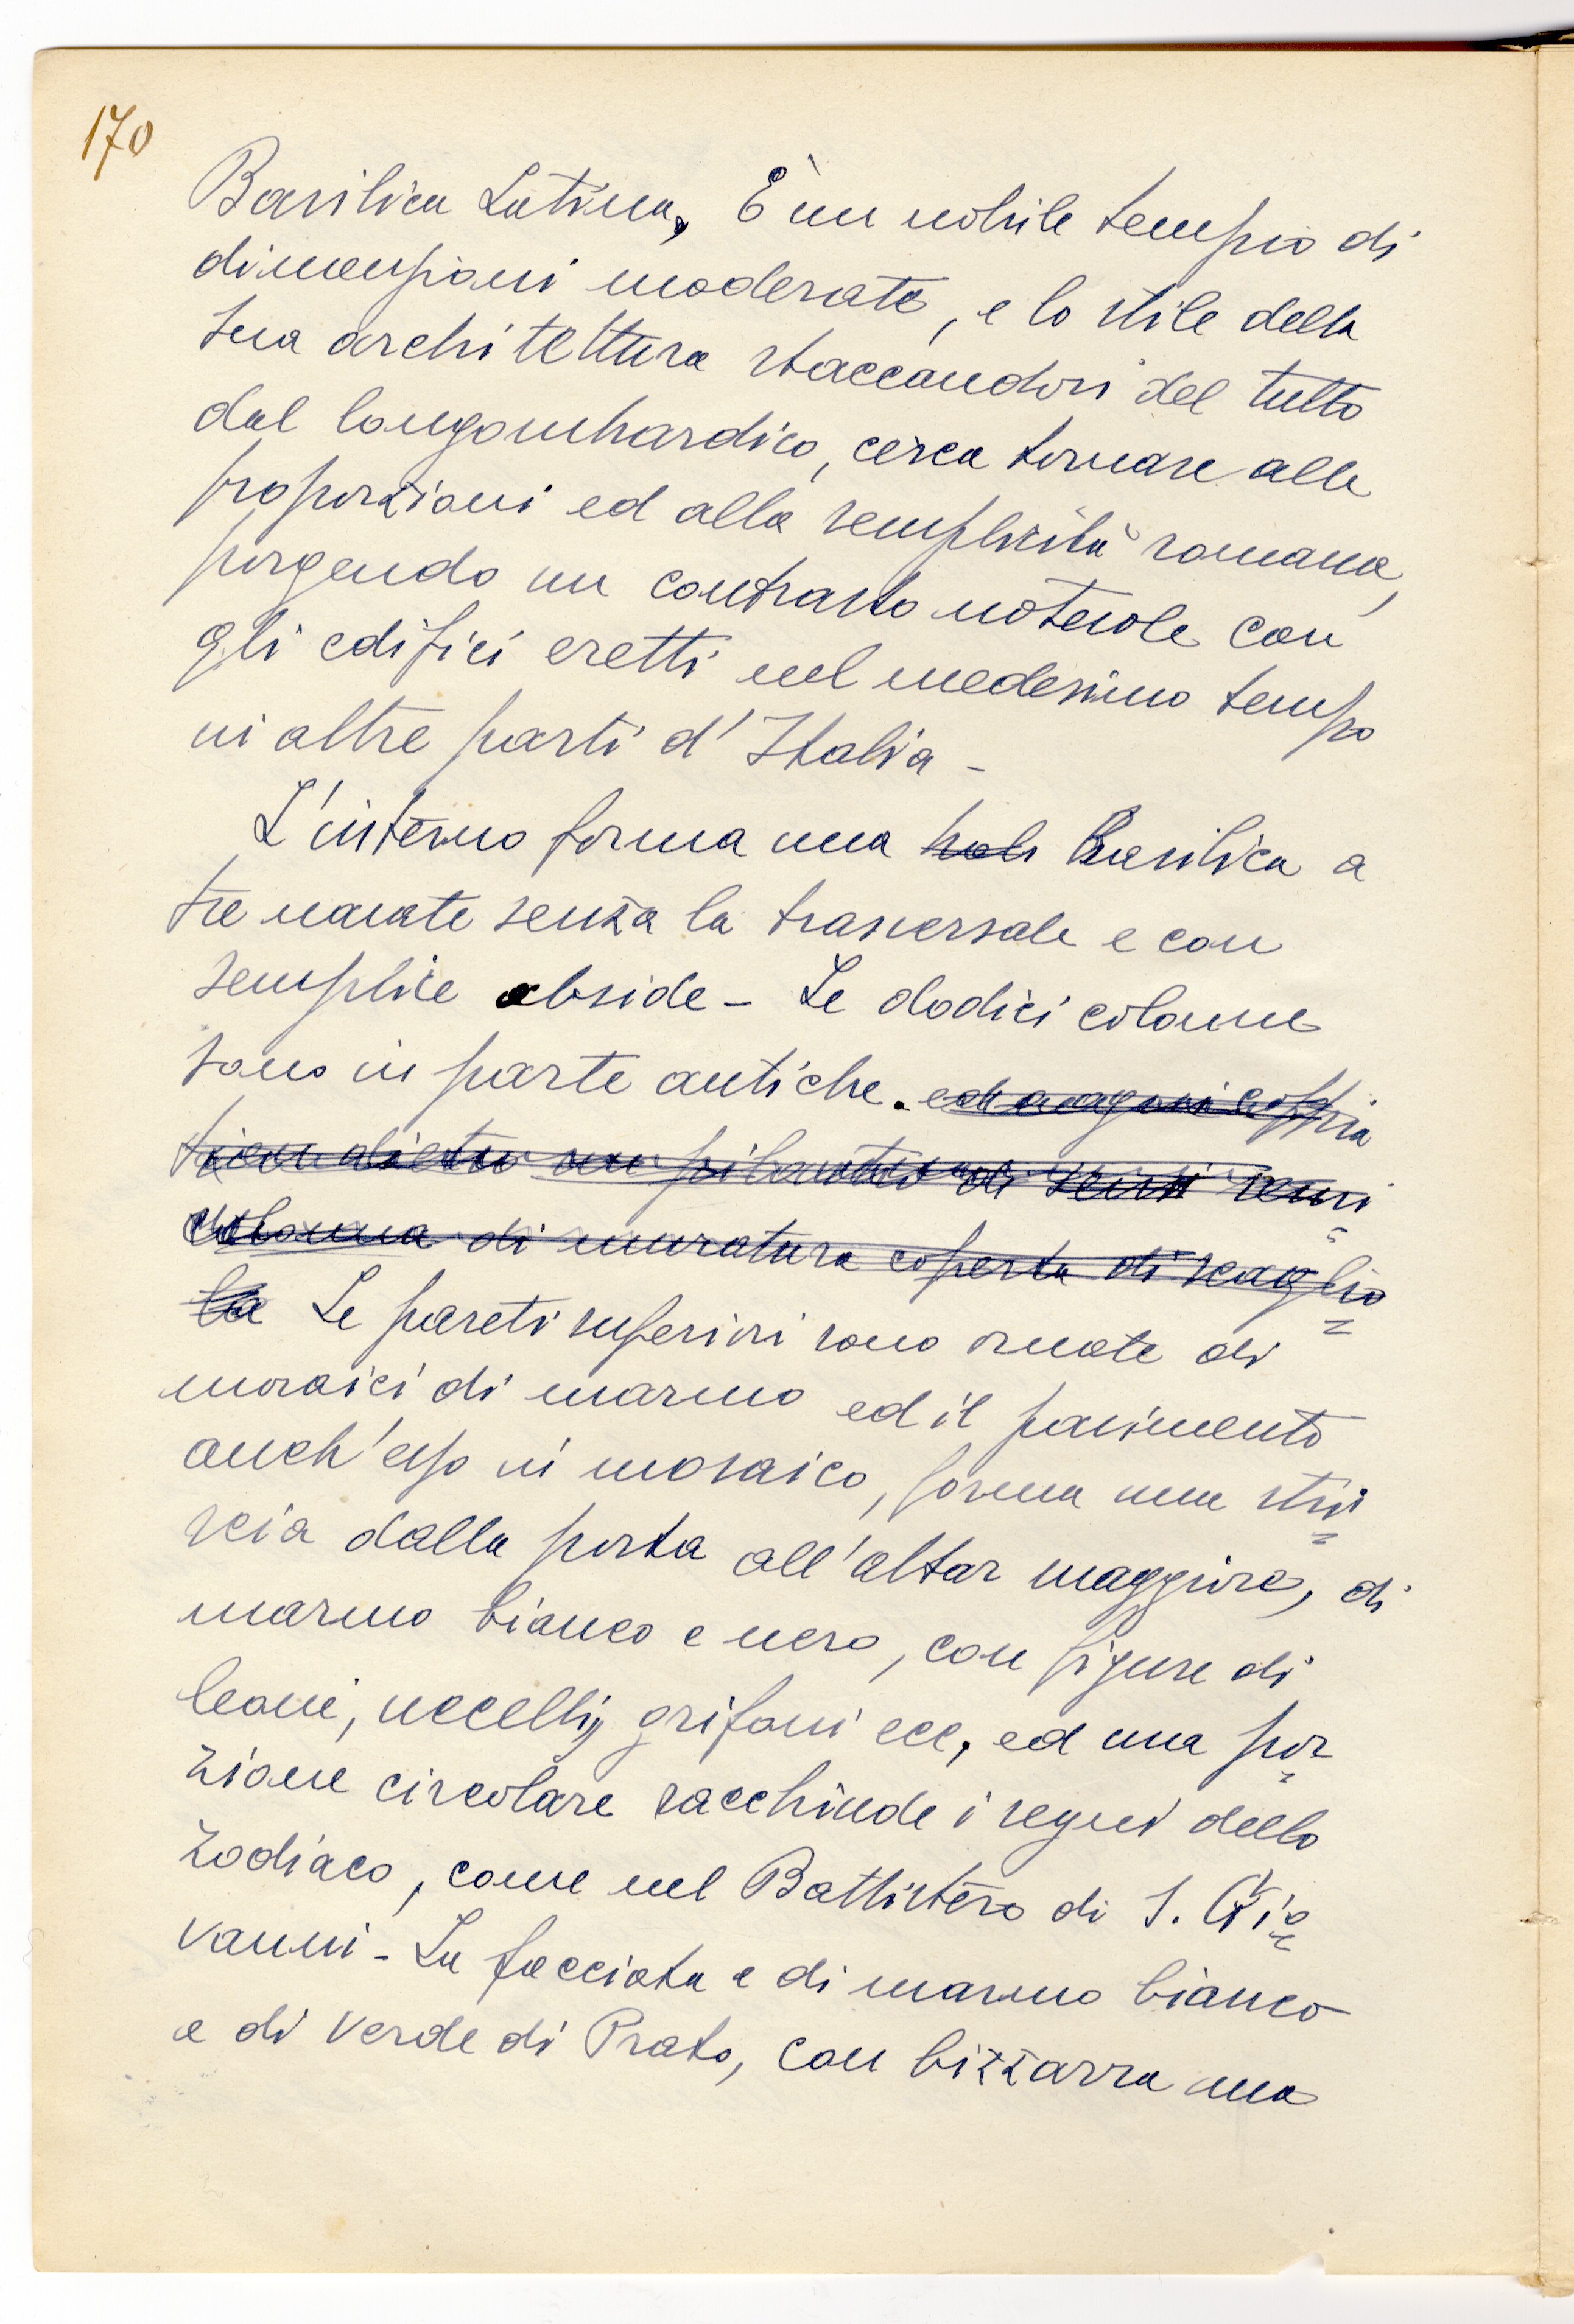 170
Basilica Latina, È un nobile tempio di
dimensioni moderate, e lo stile della
sua architettura staccandosi del tutto
dal longombardico, cerca tornare alle
proporzioni ed alla semplicità romana,
porgendo un contrasto notevole con
gli edifici eretti nel medesimo tempo
in altre parti d'Italia -
L'interno forma una Basilica a
tre navate senza la trasversale e con
semplice abside - Le dodici colonne
sono in parte antiche. ed a ogni coppia
tien dietro un pilastro di semi
colonna di muratura coperta di scaglio
la Le pareti superiori sono ornate di
mosaici di marmo ed il pavimento
anch'esso in mosaico, forma una stri
scia dalla porta all'altar maggiore, di
marmo bianco e nero, con figure di
leoni, uccelli, grifoni ecc, ed una por
zione circolare racchiude i segni dello
zodiaco, come nel Battistero di S. Gio
vanni - La facciata e di marmo bianco
e di verde di Prato, con bizzarra ma